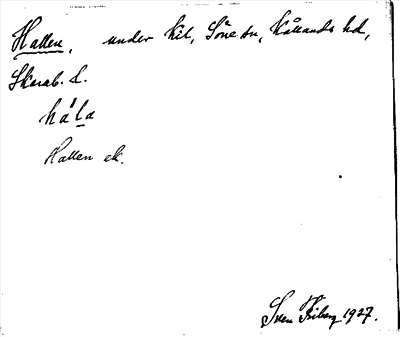 Hallen, under Kil, Söne sn, Kållands hd,
Skarab. l.
hála
Hallen ek.
Sven Friberg 1927.